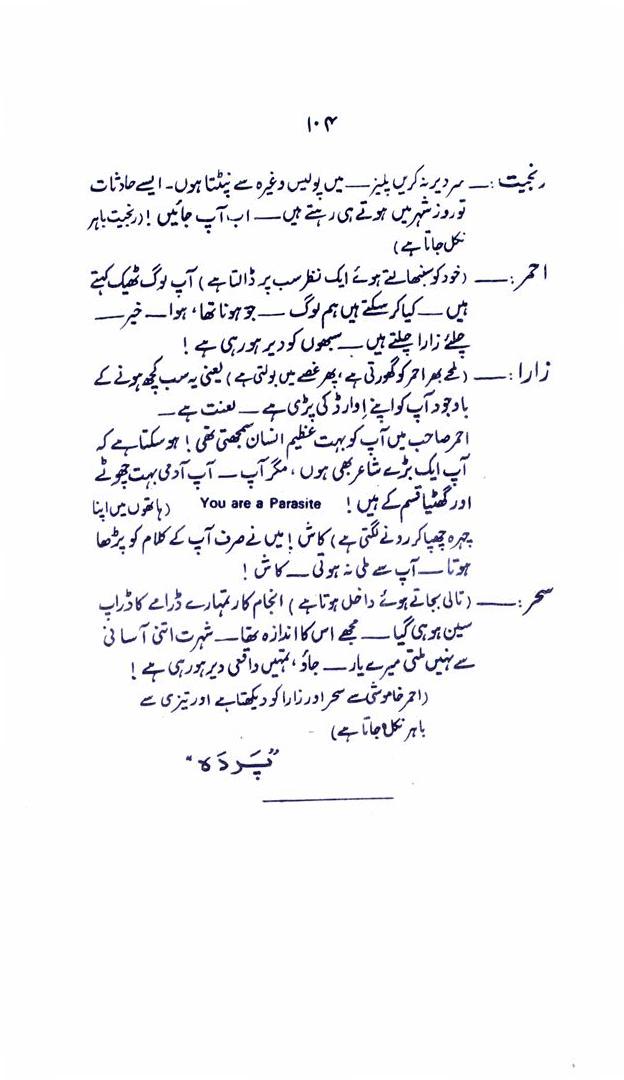 ۱۰۴
رنجیت :— سر دیر نہ کریں پلیز — میں پولیس وغیرہ سے نپٹتا ہوں۔ ایسے حادثات
تو روز شہر میں ہوتے ہی رہتے ہیں — اب آپ جائیں ! (رنجیت باہر
نکل جاتا ہے)
احمر :— (خود کو سنبھالتے ہوئے ایک نظر سب پر ڈالتا ہے) آپ لوگ ٹھیک کہتے
ہیں — کیا کر سکتے ہیں ہم لوگ — جو ہونا تھا، ہوا — خیر —
چلئے زارا چلتے ہیں — سبھوں کو دیر ہو رہی ہے !
زارا :— (لمحے بھر احمر کو گھورتی ہے، پھر غصے میں بولتی ہے) یعنی یہ سب کچھ ہونے کے
باوجود آپ کو اپنے اوارڈ کی پڑی ہے — لعنت ہے —
احمر صاحب میں آپ کو بہت عظیم انسان سمجھتی تھی ! ہو سکتا ہے کہ
آپ ایک بڑے شاعر بھی ہوں، مگر آپ — آپ آدمی بہت چھوٹے
اور گھٹیا قسم کے ہیں ! You are a Parasite (ہاتھوں میں اپنا
چہرہ چھپا کر رونے لگتی ہے) کاش ! میں نے صرف آپ کے کلام کو پڑھا
ہوتا — آپ سے ملی نہ ہوتی — کاش !
سحر :— (تالی بجاتے ہوئے داخل ہوتا ہے) انجام کار تمہارے ڈرامے کا ڈراپ
سین ہو ہی گیا — مجھے اس کا اندازہ تھا — شہرت اتنی آسانی
سے نہیں ملتی میرے یار — جاؤ، تمہیں واقعی دیر ہو رہی ہے !
(احمر خاموشی سے سحر اور زارا کو دیکھتا ہے اور تیزی سے
باہر نکل جاتا ہے)
"پَردَہ"